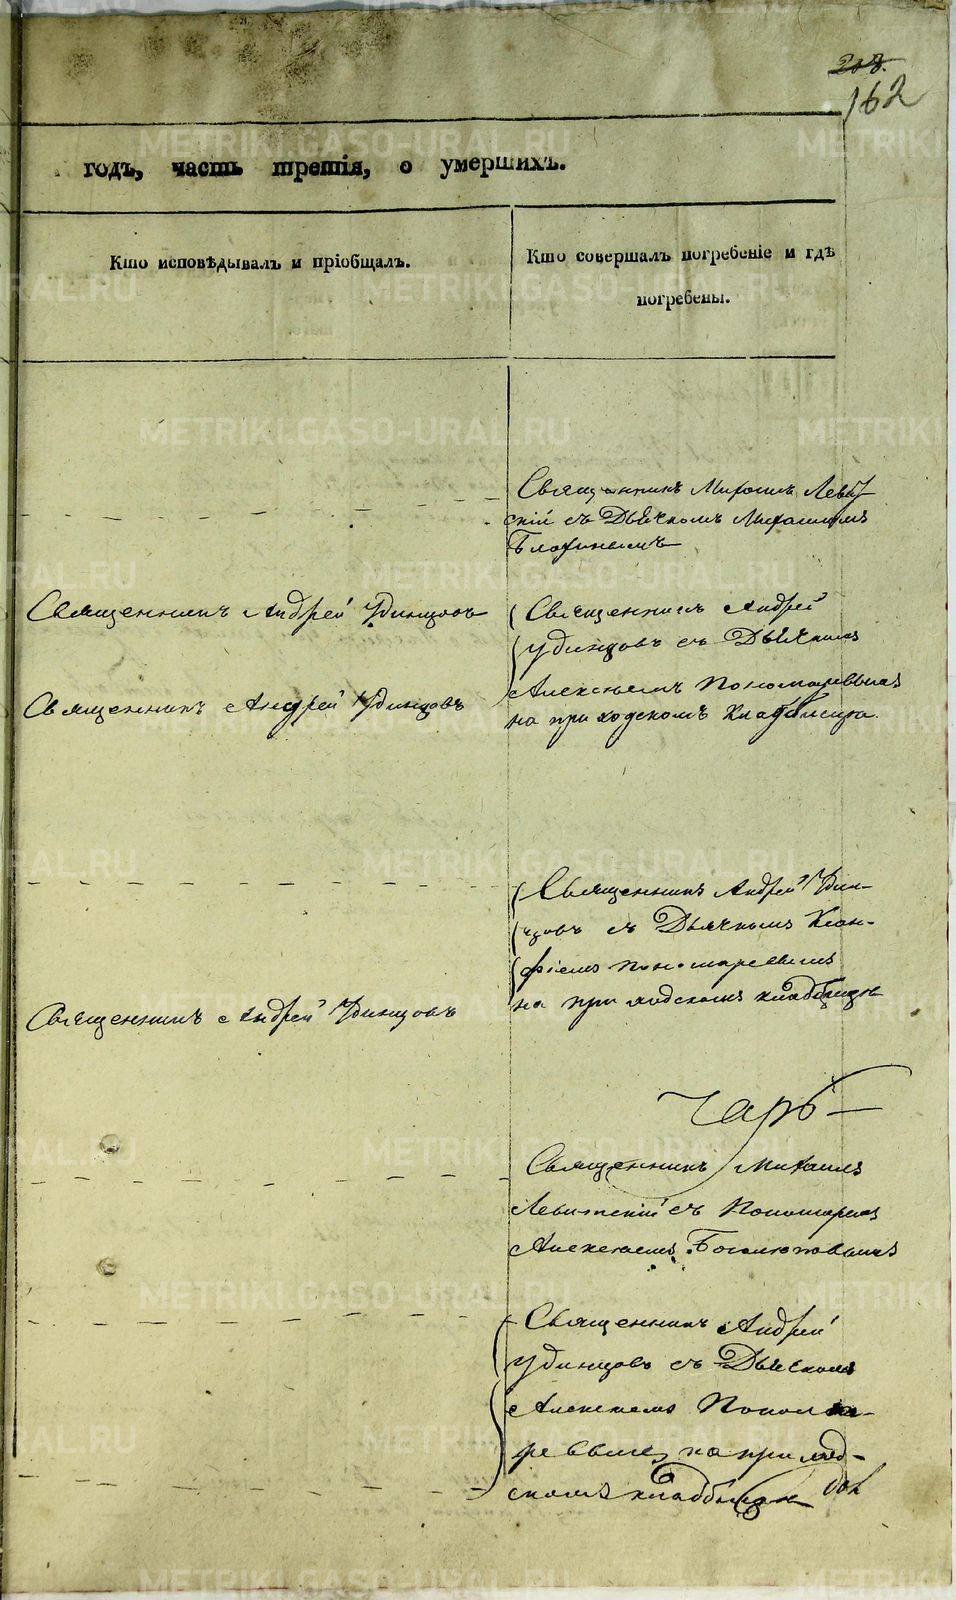 208.
162
годъ, часть третія, о умершихъ.
Кто исповѣдывалъ и пріобщалъ.
Кто совершалъ погребеніе и гдѣ
погребены.
Священникъ Михаилъ Левит
скій съ Дьячкомъ Михаиломъ
Священникъ Андрей Удинцовъ
Священникъ Андрей
Удинцовъ съ Дьячкомъ
Священникъ Андрей Удинцовъ
Алексѣемъ Пономаревымъ
на приходскомъ кладбищѣ.
Священникъ Андрей Удин-
цовъ съ Дьячкомъ Ксан-
фіемъ Пономаревымъ
на приходскомъ кладбищѣ
Священникъ Андрей Удинцовъ
Священникъ Михаилъ
Левитскій съ Пономаремъ
Алексѣемъ
Священникъ Андрей
Удинцовъ съ Дьячкомъ
Алексѣемъ Понома-
ревымъ на приход-
скомъ кладбищѣ
METRIKI.GASO-URAL.RU